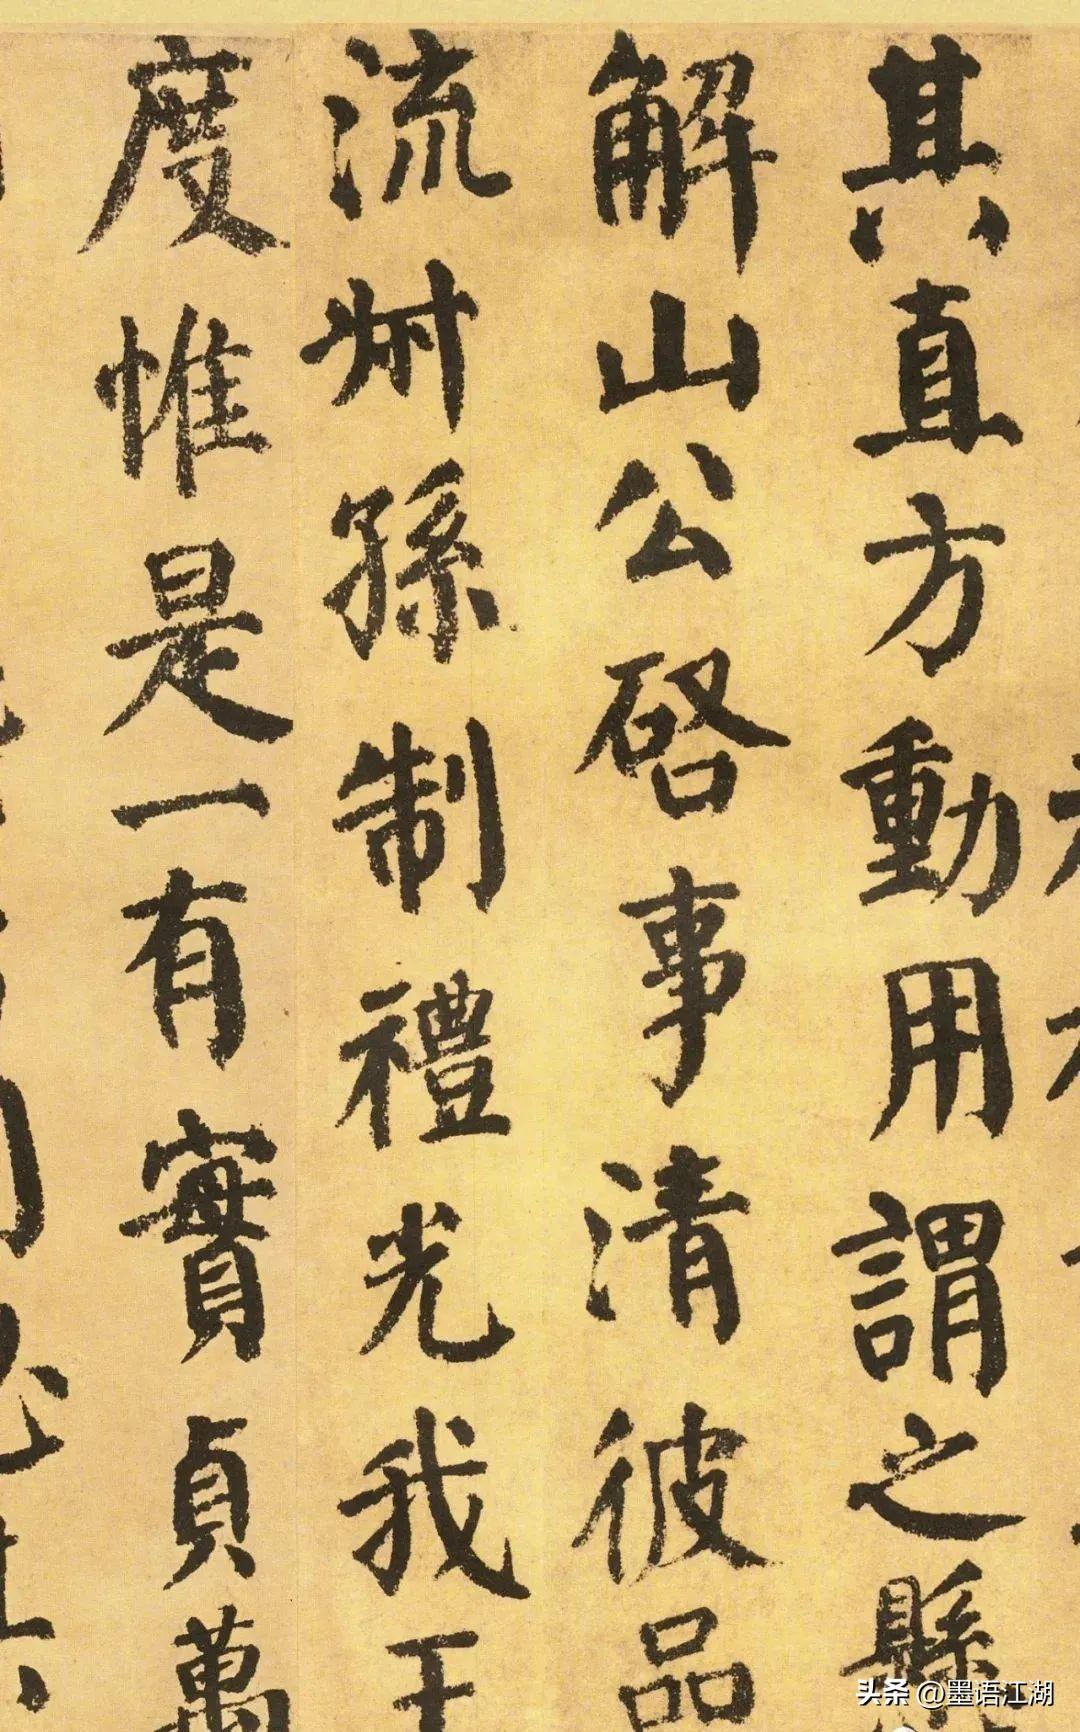 其直方動用謂之縣
解山公啓事清彼品
流叔孫制禮光我王
度惟是一有實貞萬
头条 @墨语江湖